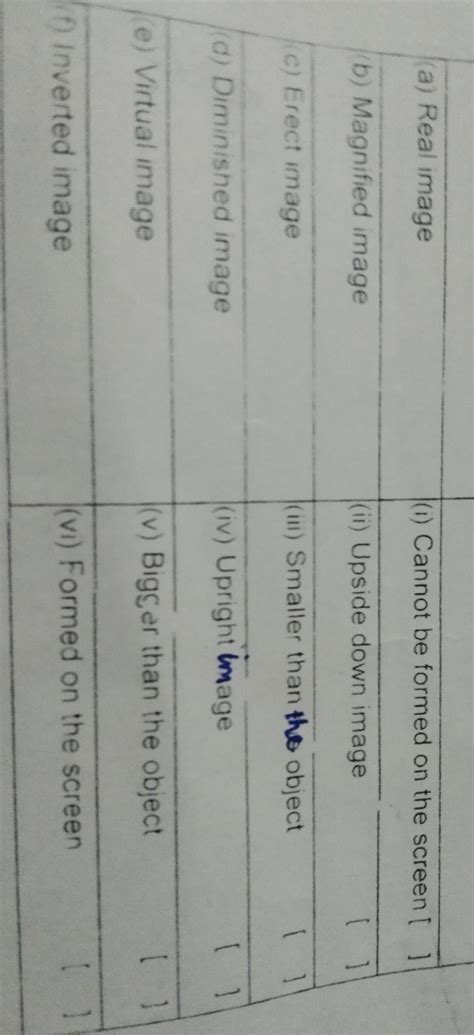 (a) Real image (i) Cannot be formed on the screen [ ]
(b) Magnified image (ii) Upside down image [ ]
(c) Erect image (iii) Smaller than the object [ ]
(d) Diminished image (iv) Upright image [ ]
(e) Virtual image (v) Bigger than the object [ ]
(f) Inverted image (vi) Formed on the screen [ ]